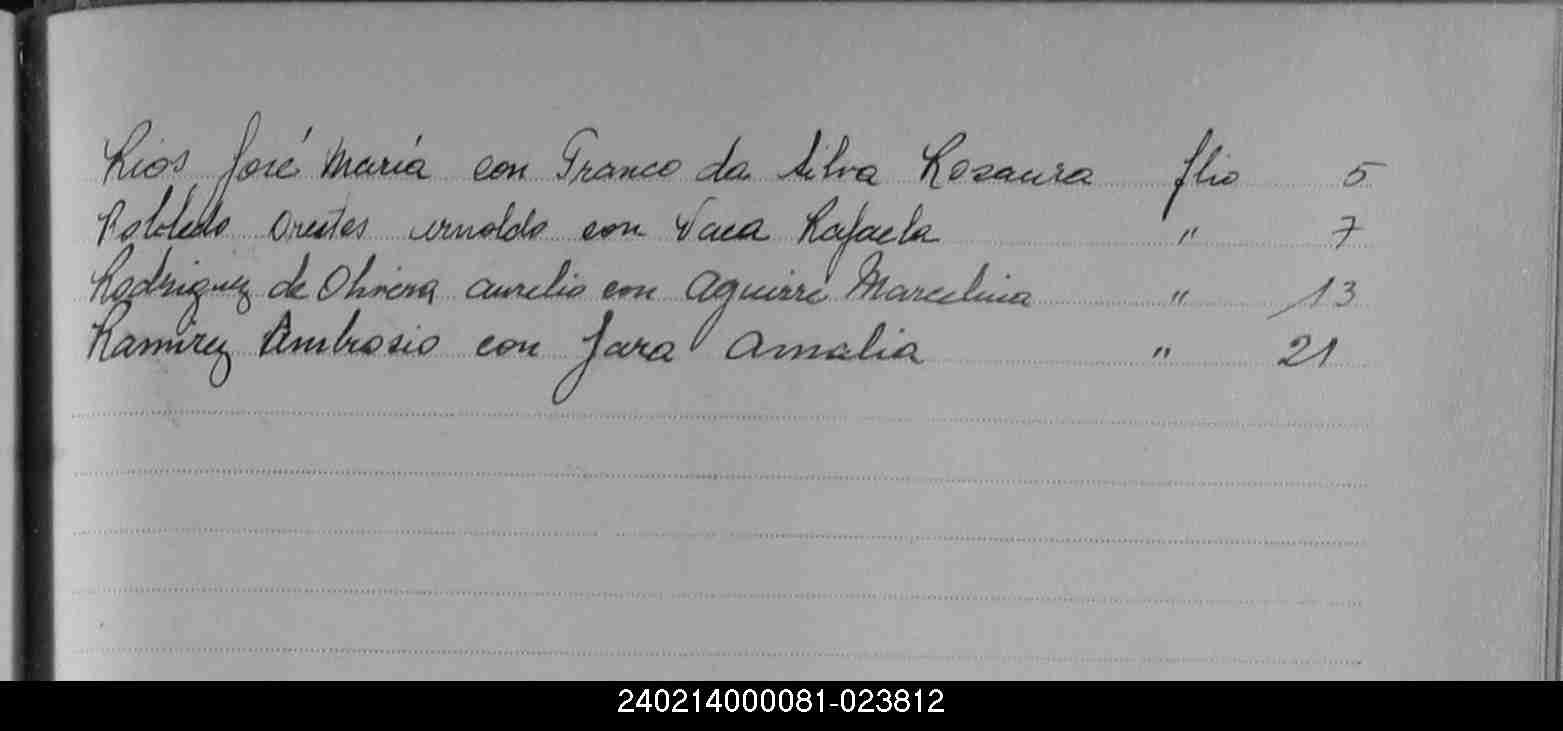 Rios José María con Franco da Silva Rosaura flio 5
Robledo Orestes Arnoldo con Vaca Rafaela " 7
Rodriguez de Olivera Aurelio con Aguirre Marcelina " 13
Ramirez Ambrosio con Jara Amalia " 21
240214000081-023812